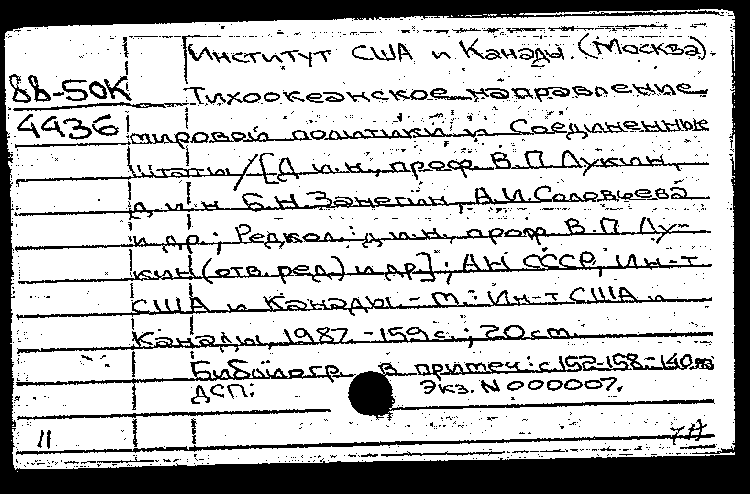 Институт США и Канады. (Москва).
88-50К Тихоокеанское направление
4436 мировой политики и Соединенные
Штаты / [Д. и. н., проф. В.П. Лукин,
д. и. н. Б.Н. Занегин, А.И. Соловьева
и др.; Редкол.: д. и. н., проф. В.П. Лу-
кин (отв. ред.) и др.]; АН СССР, Ин-т
США и Канады. - М.: Ин-т США и
Канады, 1987. - 159 с.; 20 см.
Библиогр. в примеч: с. 152-158. - 140 экз
ДСП: Экз. N 000007.
11